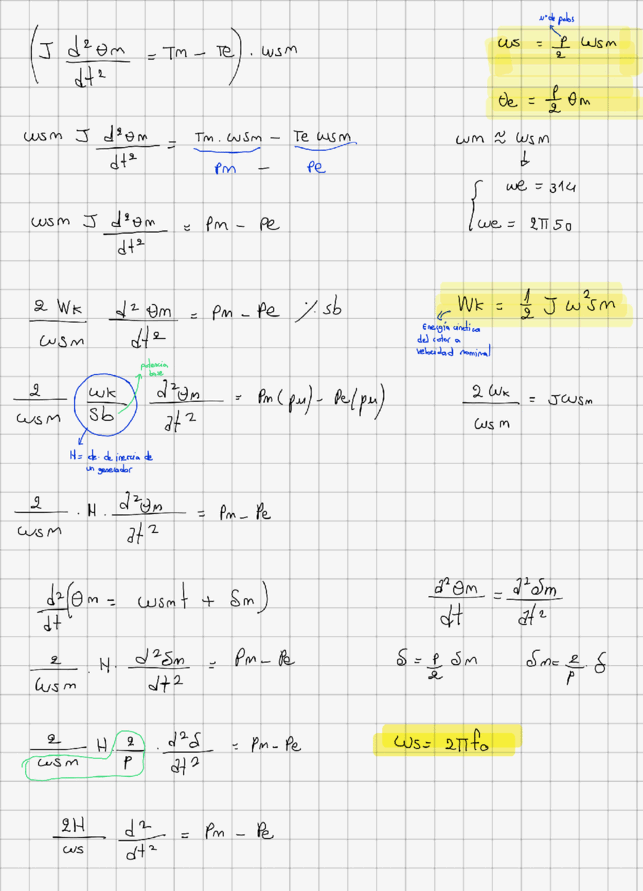 Nº de polos
(J d²θm/dt² = Tm - Te) · wsm
ws = p/2 wsm
θe = p/2 θm
wsm J d²θm/dt² = Tm. wsm - Te wsm
Pm - Pe
wm ≈ wsm
we = 314
we = 2π50
wsm J d²θm/dt² = Pm - Pe
2 Wk/wsm d²θm/dt² = Pm - Pe ٪ Sb
Wk = 1/2 J w²sm
Energía cinética
del rotor a
velocidad nominal
potencia
base
2/wsm Wk/Sb d²θm/dt² = Pm(pu) - Pe(pu)
2Wk/wsm = Jwsm
H = cte. de inercia de
un generador
2/wsm · H · d²θm/dt² = Pm - Pe
d²/dt (θm = wsmt + δm)
d²θm/dt = d²δm/dt²
2/wsm · H · d²δm/dt² = Pm - Pe
δ = p/2 δm
δm = 2/p · δ
2/wsm H 2/p · d²δ/dt² = Pm - Pe
ws = 2πfo
2H/ws d²/dt² = Pm - Pe